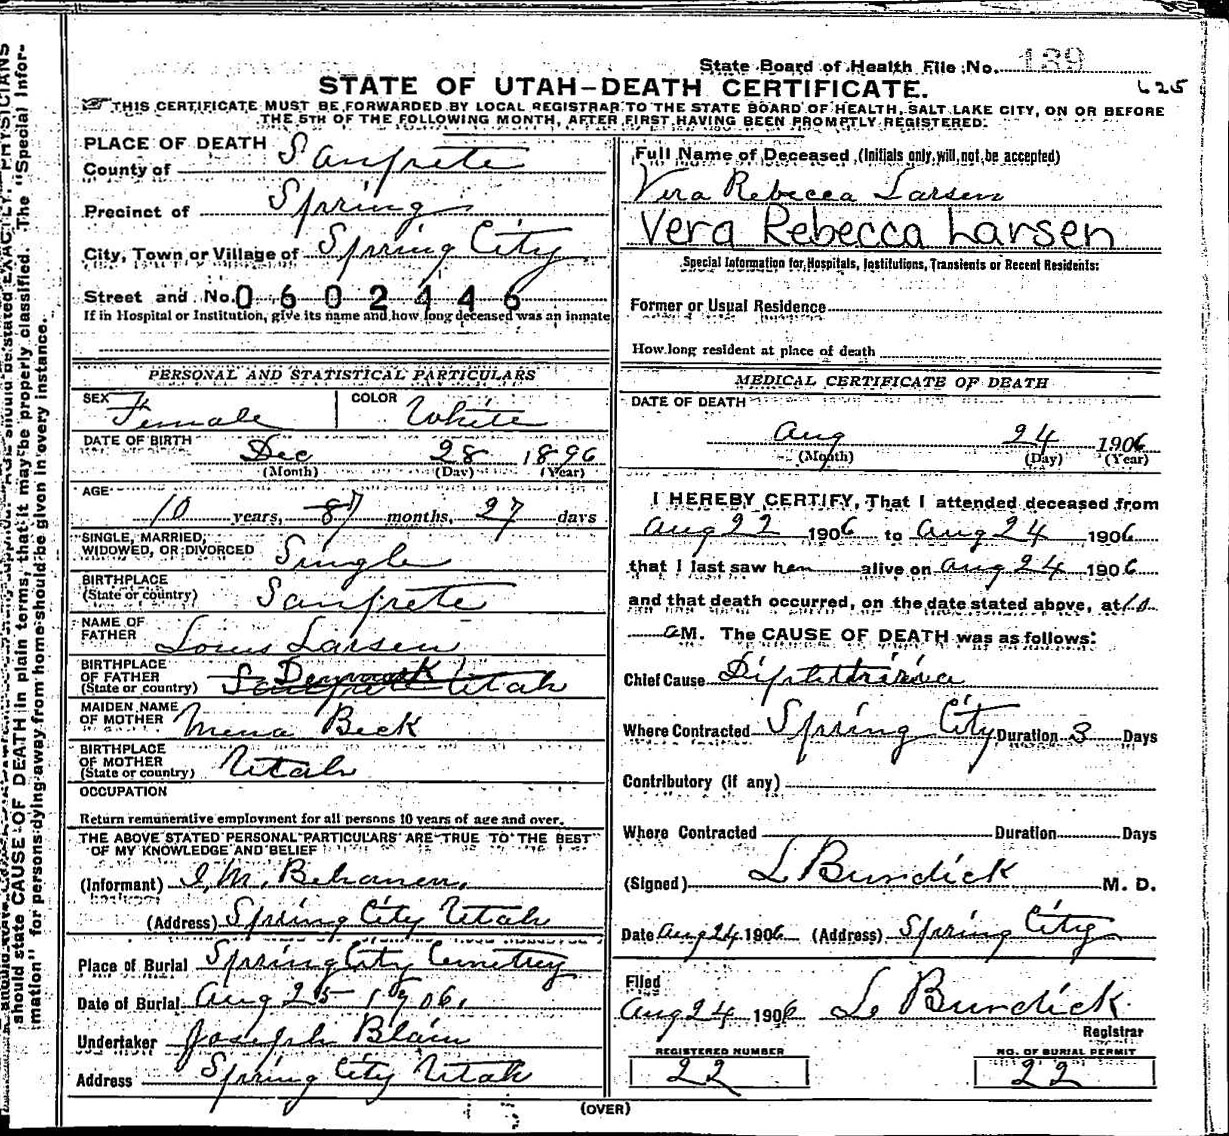 State Board of Health File No. 189
STATE OF UTAH-DEATH CERTIFICATE.
625
THIS CERTIFICATE MUST BE FORWARDED BY LOCAL REGISTRAR TO THE STATE BOARD OF HEALTH, SALT LAKE CITY, ON OR BEFORE
THE 5TH OF THE FOLLOWING MONTH, AFTER FIRST HAVING BEEN PROMPTLY REGISTERED.
PLACE OF DEATH
County of Sanpete
Precinct of Spring
City, Town or Village of Spring City
Street and No. 0602446
If in Hospital or Institution, give its name and how long deceased was an inmate
PERSONAL AND STATISTICAL PARTICULARS
SEX Female COLOR White
DATE OF BIRTH Dec 28 1896
(Month) (Day) (Year)
AGE
10 years, 87 months, 27 days
SINGLE, MARRIED,
WIDOWED, OR DIVORCED Single
BIRTHPLACE
(State or country) Sanpete
NAME OF
FATHER Louis Larsen
BIRTHPLACE
OF FATHER Denmark
(State or country) Sanpete Utah
MAIDEN NAME
OF MOTHER Mena Beck
BIRTHPLACE
OF MOTHER
(State or country) Utah
OCCUPATION
Return remunerative employment for all persons 10 years of age and over.
THE ABOVE STATED PERSONAL PARTICULARS ARE TRUE TO THE BEST
OF MY KNOWLEDGE AND BELIEF
(Informant) I, M, Behanen,
(Address) Spring City Utah
Place of Burial Spring City Cemetrey
Date of Burial Aug 25 1906.
Undertaker Joseph Blain
Address Spring City Utah
Full Name of Deceased (Initials only, will not be accepted)
Vera Rebecca Larsen
Vera Rebecca Larsen
Special Information for Hospitals, Institutions, Transients or Recent Residents:
Former or Usual Residence
How long resident at place of death
MEDICAL CERTIFICATE OF DEATH
DATE OF DEATH
Aug 24 1906
(Month) (Day) (Year)
I HEREBY CERTIFY, That I attended deceased from
Aug 22 1906 to Aug 24 1906
that I last saw her alive on Aug 24 1906
and that death occurred, on the date stated above, at 10
a M. The CAUSE OF DEATH was as follows:
Chief Cause
Where Contracted Spring City Duration 3 Days
Contributory (if any)
Where Contracted Duration Days
(Signed) L Burdick M. D.
Date Aug 24 1906 (Address) Spring City
Filed
Aug 24 1906 L Burdick
Registrar
REGISTERED NUMBER
22
NO. OF BURIAL PERMIT
22
(OVER)
should state CAUSE OF DEATH in plain terms, that it may be properly classified. The "Special Infor-
mation" for persons dying away from home should be given in every instance.